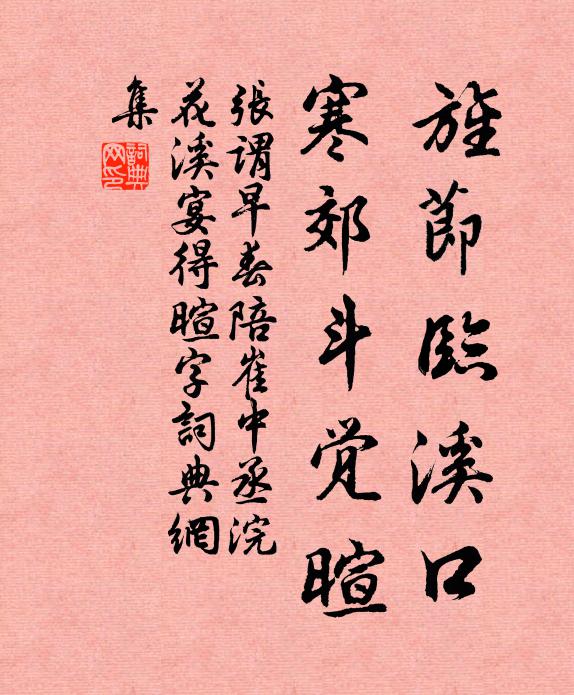 旌節臨溪口
寒郊斗覚暄
張謂早春陪崔中丞浣
花溪宴得暄字詞典網
集
詞典
网印